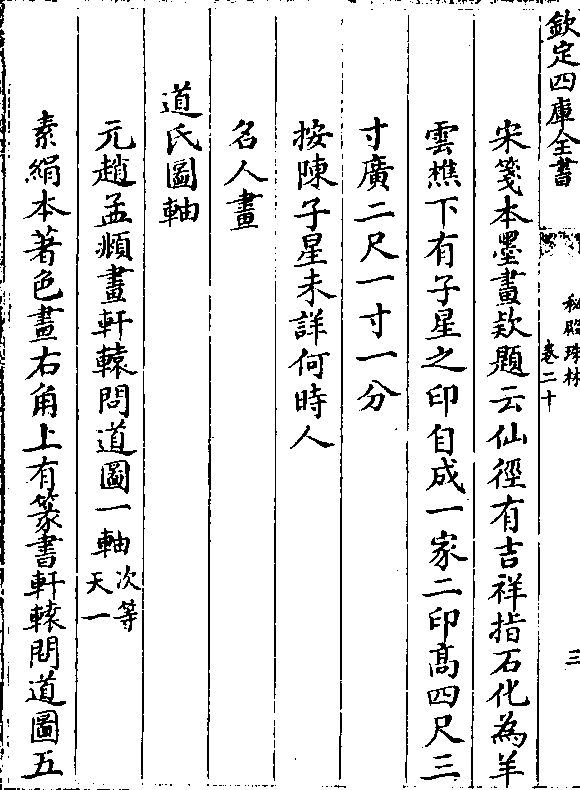 欽定四庫全書
秘殿珠林
卷二十
三
宋箋本墨畫欵題云仙徑有吉祥指石化為羊
雲樵下有子星之印自成一家二印髙四尺三
寸廣二尺一寸一分
按陳子星未詳何時人
名人畫
道氏圖軸
元趙孟頫畫軒轅問道圖一軸次等天一
素絹本著色畫右角上有篆書軒轅問道圖五